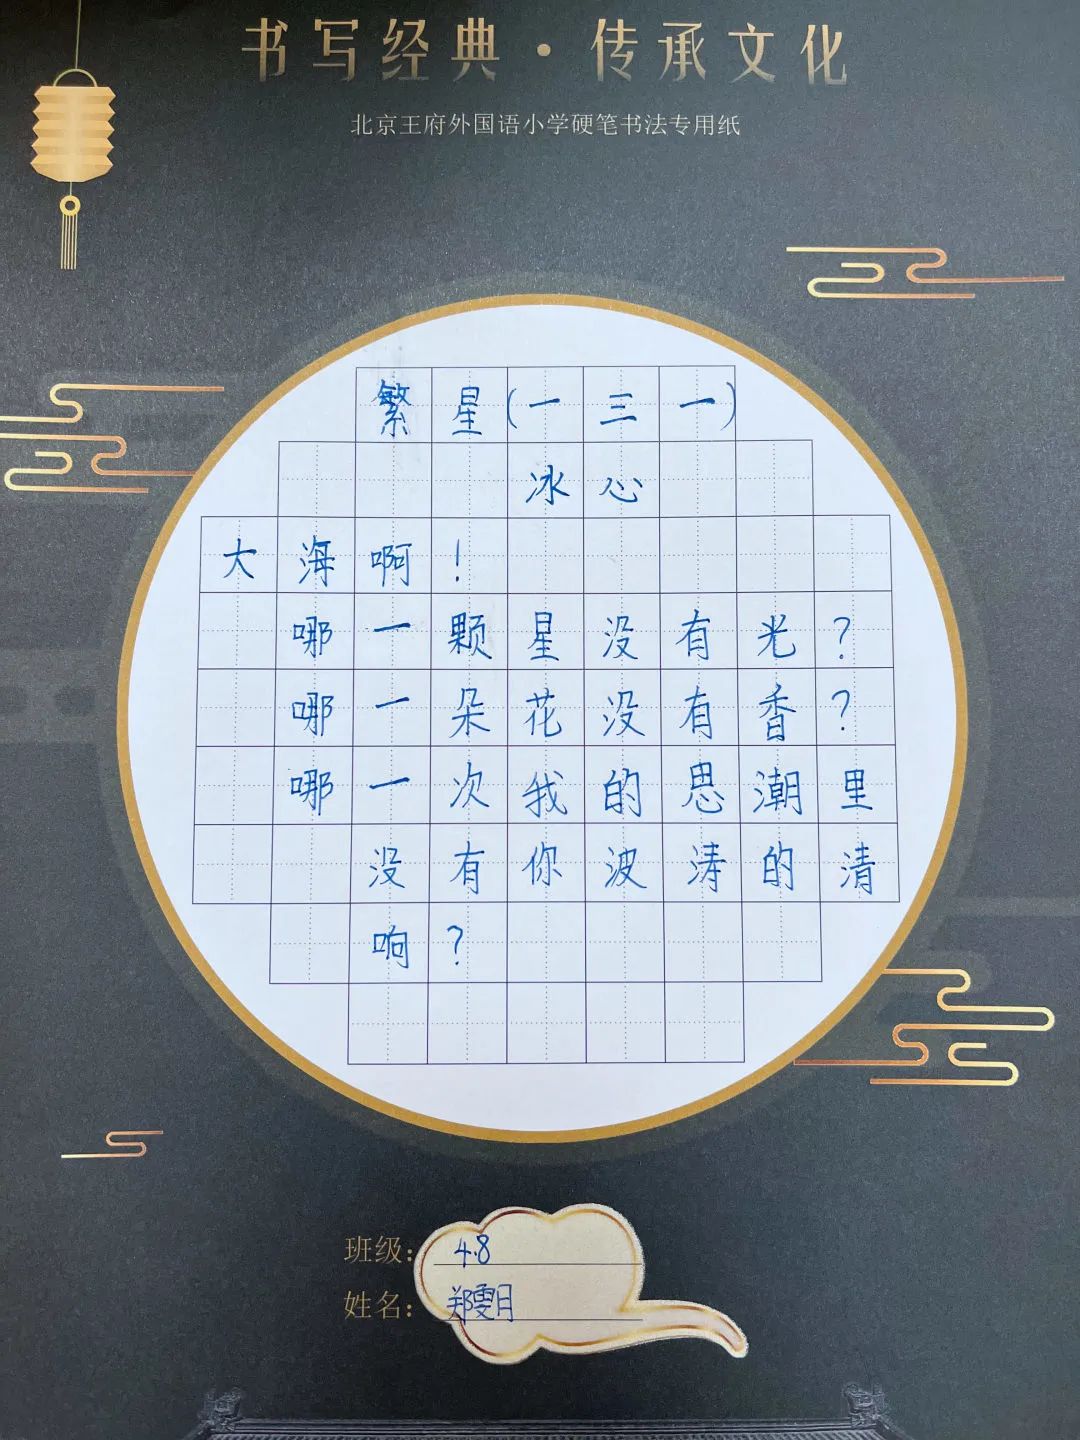 书写经典·传承文化
北京王府外国语小学硬笔书法专用纸
繁星(一三一)
冰心
大海啊!
哪一颗星没有光?
哪一朵花没有香?
哪一次我的思潮里
没有你波涛的清
响?
班级: 4.8
姓名: 郑雯月